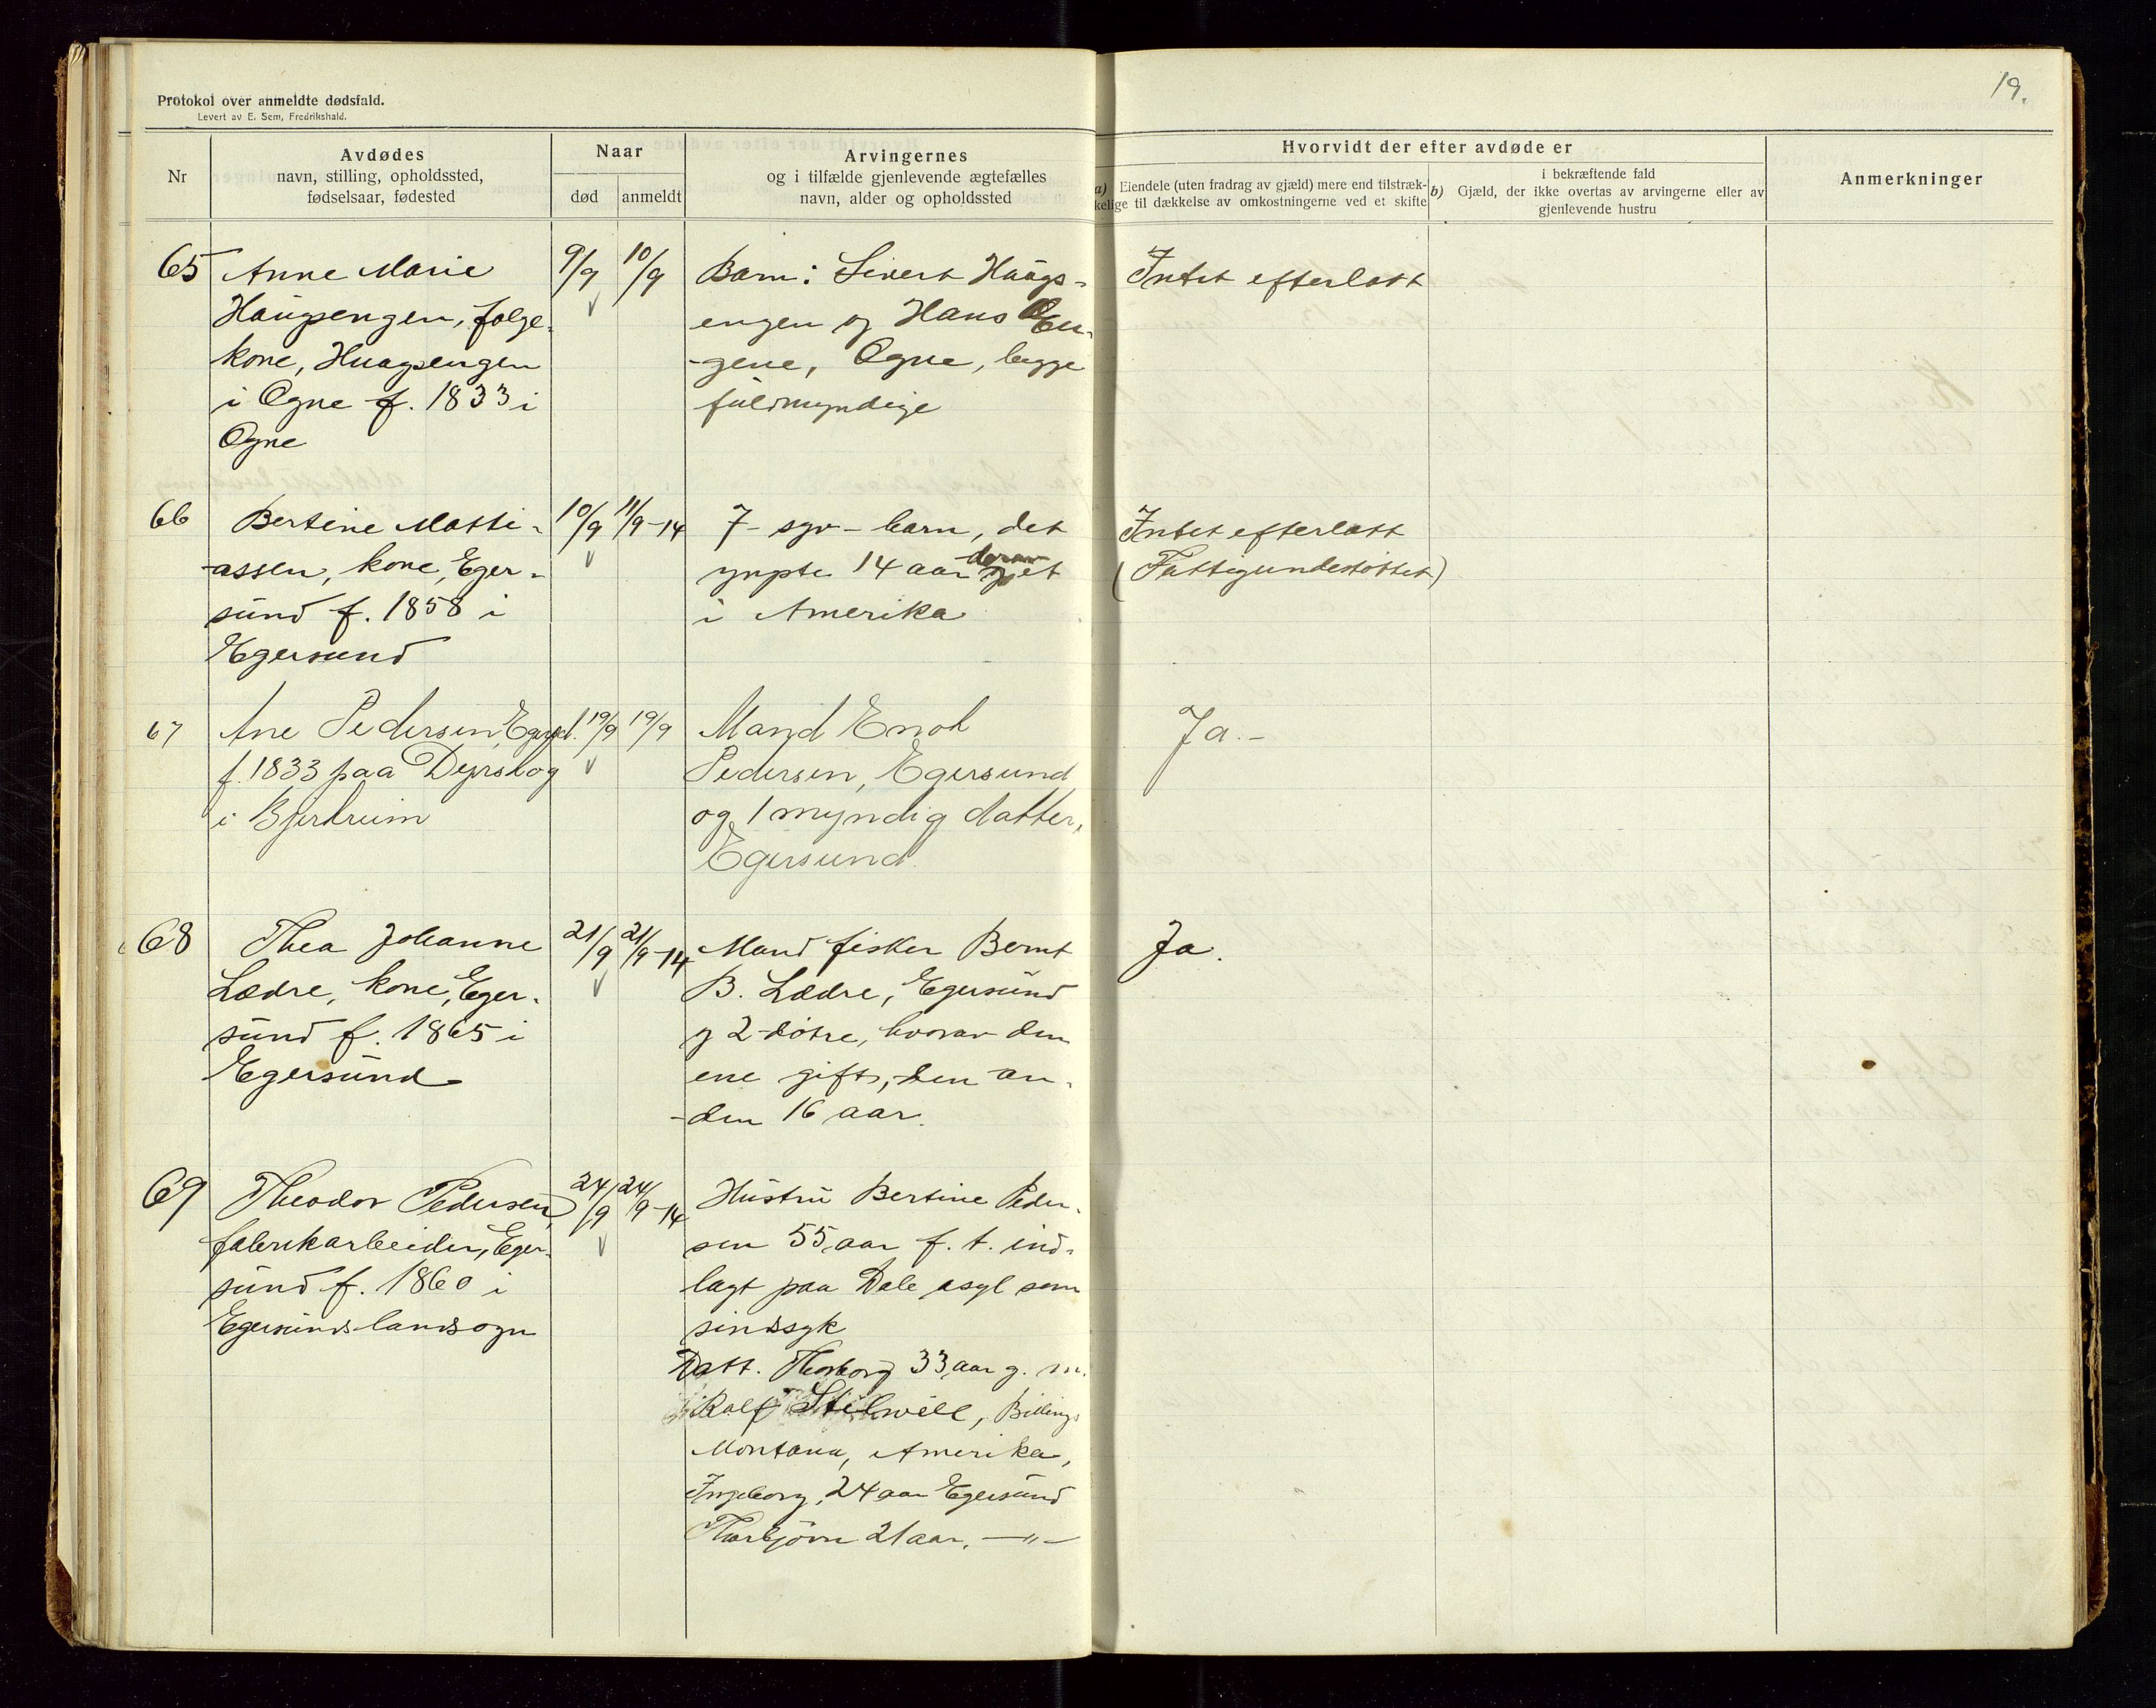 Protokol over anmeldte dødsfald.
Levert av E. Sem, Fredrikshald.
19.
Nr
Avdødes
navn, stilling, opholdssted,
fødselsaar, fødested
Naar
død
anmeldt
Arvingernes
og i tilfælde gjenlevende ægtefælles
navn, alder og opholdssted
Hvorvidt der efter avdøde er
a) Eiendele (uten fradrag av gjæld) mere end tilstræk-
kelige til dækkelse av omkostningerne ved et skifte
i bekræftende fald
b) Gjæld, der ikke overtas av arvingerne eller av
gjenlevende hustru
Anmerkninger
65
Anne Marie
Haugsengen, følge-
kone, Huagsengen
i Ogne f. 1833 i
Ogne
9/9
10/9
Barn: Sivert Haugs-
engen og Hans
Ogne, begge
fuldmyndige
Intet efterlatt
66
Bertine Matti-
assen, kone, Eger-
sund f. 1858 i
Egersund
10/9
11/9-14
7- syv- barn, det
yngste 14 aar derav et
i Amerika
Intet efterlatt
(Fattigundestøttet)
67
Ane Pedersen, Egersd.
f. 1833 paa Dyrskog
i Bjerkreim
19/9
19/9
Mand Enok
Pedersen, Egersund
og 1 myndig datter,
Egersund.
Ja.-
68
Thea Johanne
Lædre, kone, Eger-
sund f. 1865 i
Egersund
21/9
21/9-14
Mand fisker Bernt
B. Lædre, Egersund
og 2 døtre, hvorav den
ene gift, den an-
den 16 aar.
Ja.
69
Theodor Pedersen,
fabrikarbeider, Eger-
sund f. 1860 i
Egersunds landsogn
24/9
24/9-14
Hustru Bertine Peder-
sen 55 aar f. t. ind-
lagt paa Dale asyl som
sindssyk
Datt. Thorborg 33 aar g. m.
Ralf Stilwell, Billings
Montana, Amerika,
Ingeborg, 24 aar Egersund
Thorbjørn 21 aar. —"—